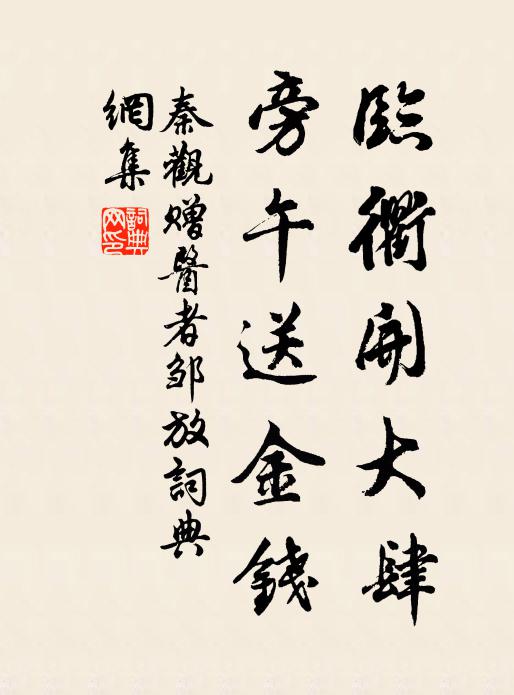 臨衢開大肆
旁午送金錢
秦觀贈醫者鄒放詞典
網集
詞典
网印